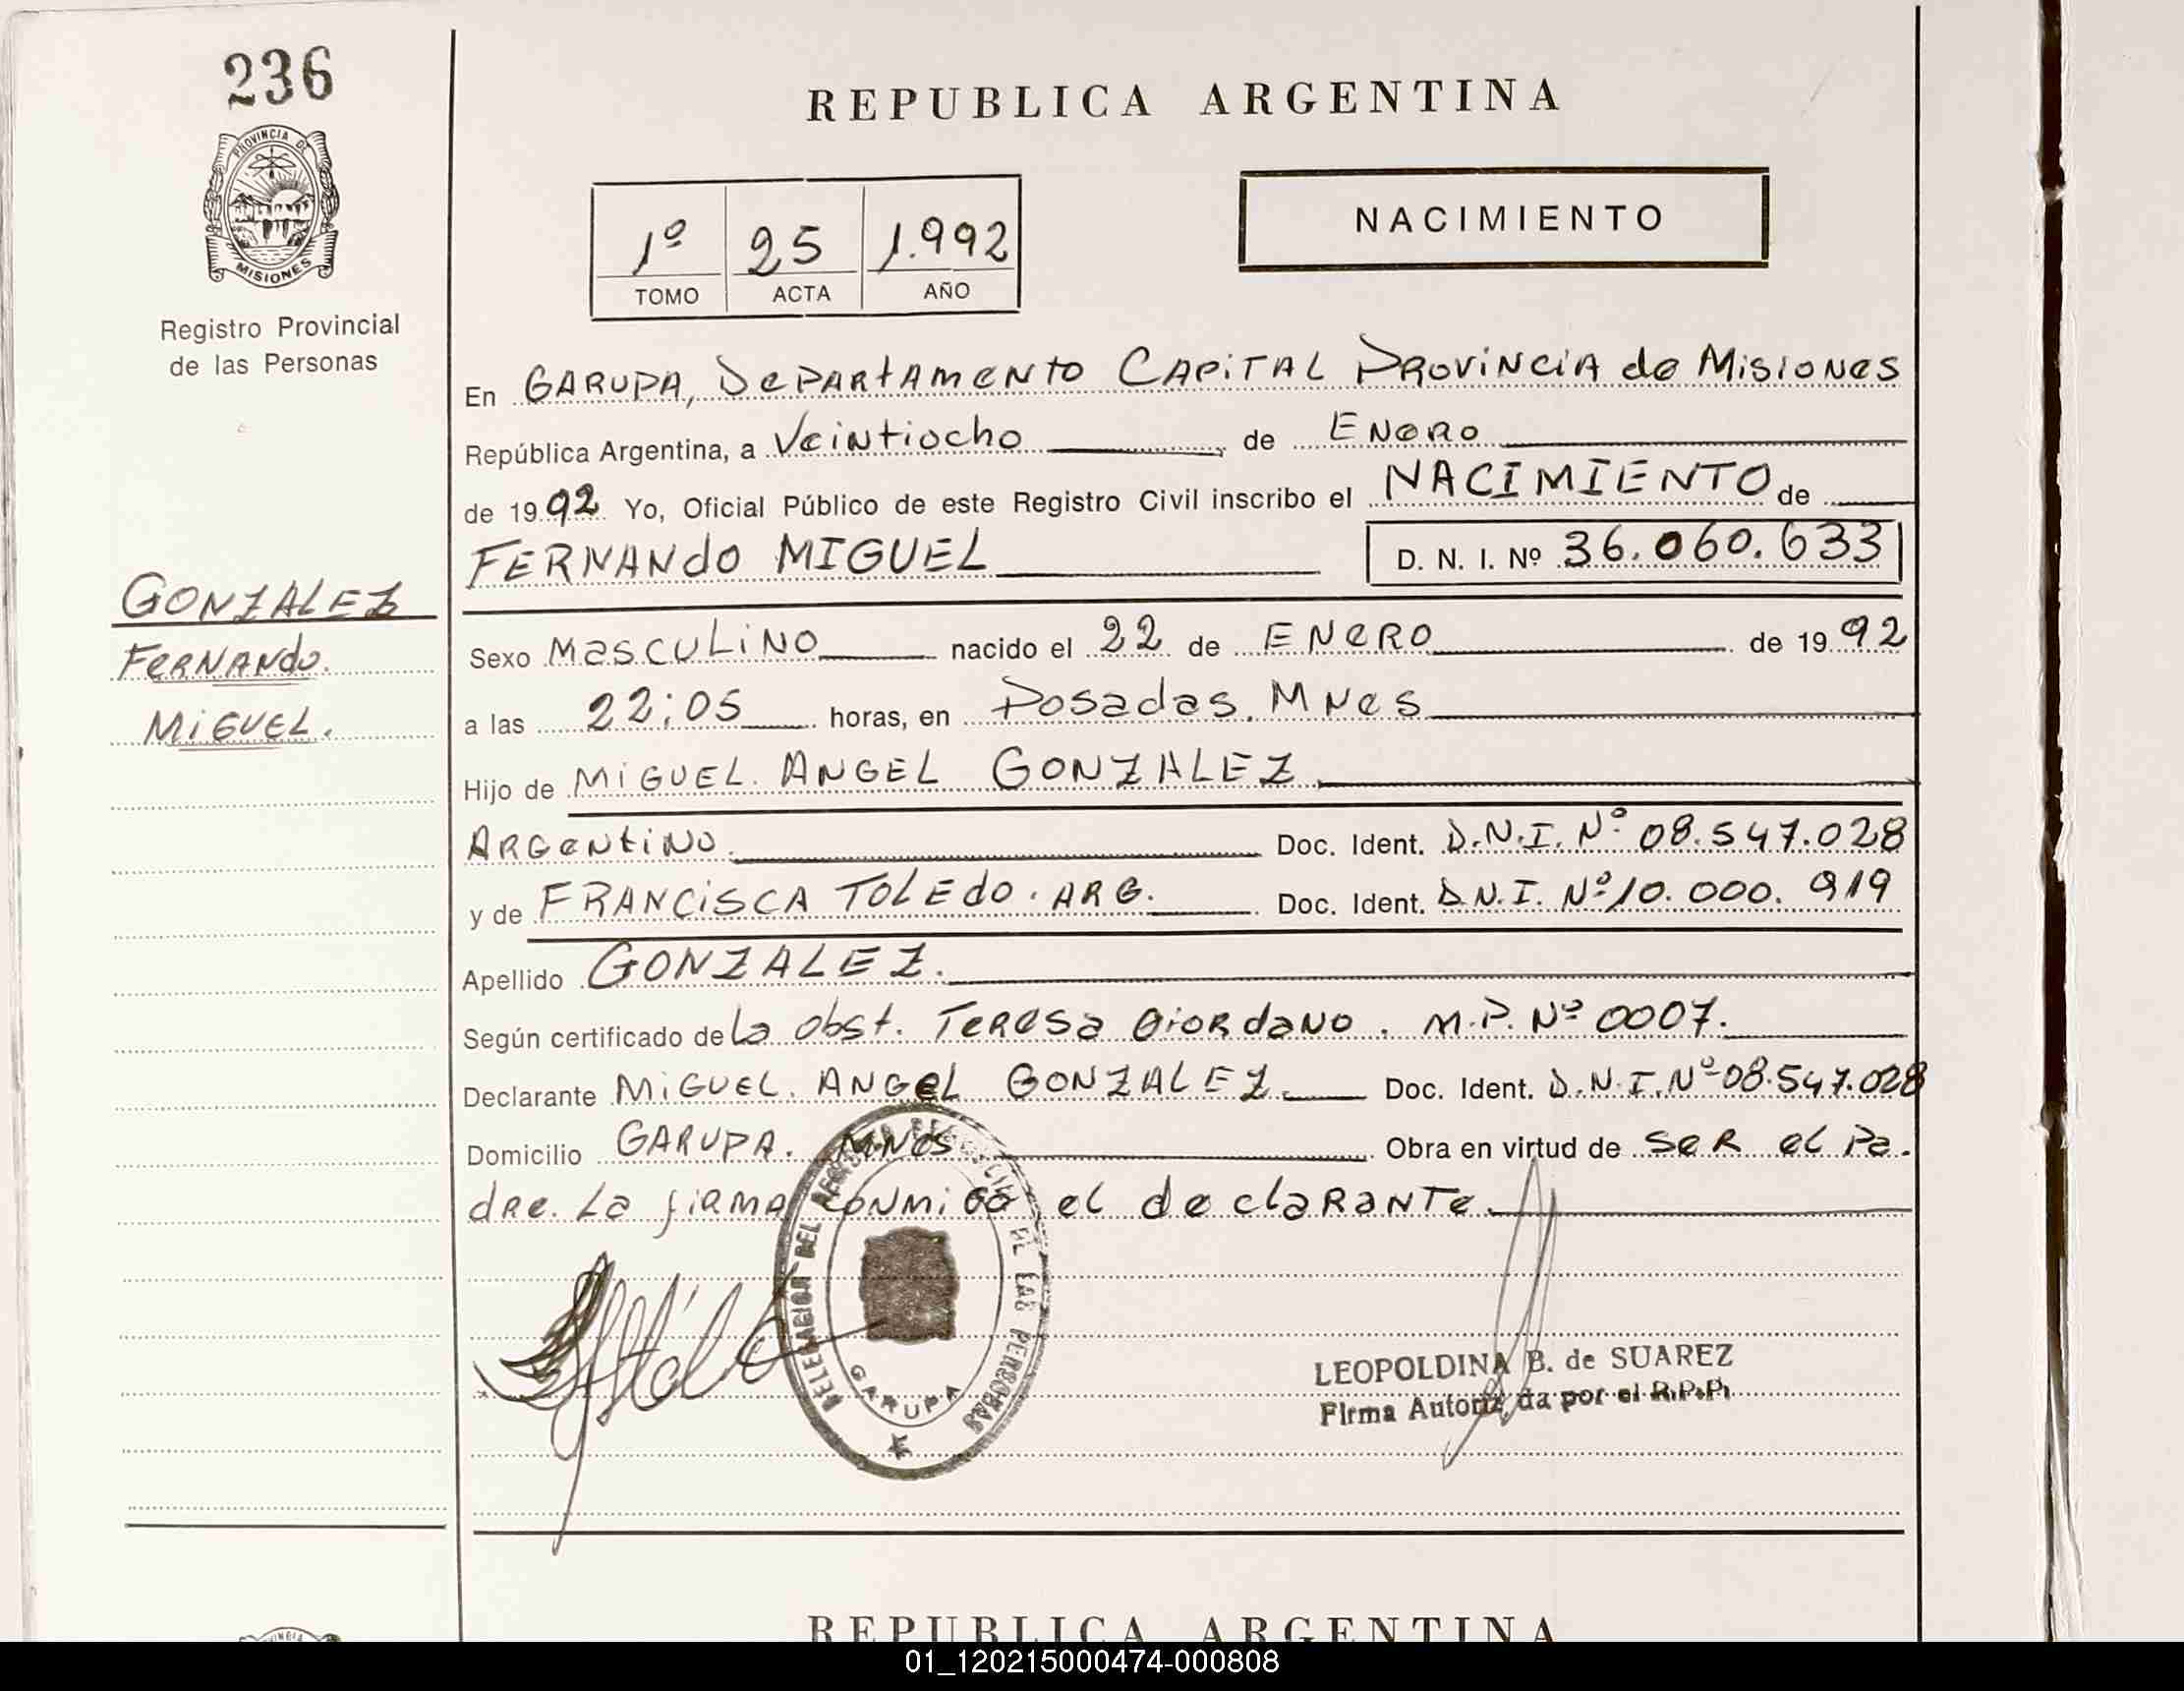 236
PROVINCIA DE
MISIONES
Registro Provincial
de las Personas
GONZALEZ
FERNANdo.
MIGUEL.
REPUBLICA ARGENTINA
1º 25 1.992
TOMO ACTA AÑO
NACIMIENTO
En GARUPA, DePARtAMeNto CAPiTAL PRoviNciA de MisioNes
República Argentina, a Veintiocho de ENeRo
de 1992 Yo, Oficial Público de este Registro Civil inscribo el NACIMIENTO de
FERNANdo MIGUEL D. N. I. Nº 36.060.633
Sexo MasCULiNO nacido el 22 de ENeRO de 1992
a las 22:05 horas, en Posadas. MNes
Hijo de MiGUEL. ANGEL GONZALEZ
ARGeNtiNo. Doc. Ident. D.N.I. Nº 08.547.028
y de FRANCiSCA TOLEdo. ARG. Doc. Ident. D.N.I. Nº 10.000.919
Apellido GONZALEZ.
Según certificado de la obst. TeResa GioRdaNo. M.P. Nº 0007.
Declarante MiGUEL. ANGeL GONZALEZ. Doc. Ident. D.N.I.Nº 08.547.028
Domicilio GARUPA. MNes Obra en virtud de seR el Pa.
dRe. La fiRMA coNMiGo el declaRaNTe.
DELEGACION DEL REGISTRO PROVINCIAL DE LAS PERSONAS
GARUPA
LEOPOLDINA B. de SUAREZ
Firma Autorizada por el R.P.P.
REPUBLICA ARGENTINA
01_120215000474-000808